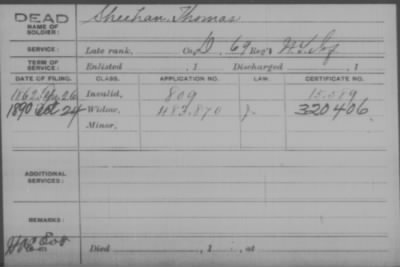 DEAD
NAME OF SOLDIER: Sheehan, Thomas
SERVICE: Late rank, Co. D, 69 Reg't N.Y. Inf
TERM OF SERVICE: Enlisted , 1 Discharged , 1
DATE OF FILING. CLASS. APPLICATION NO. LAW. CERTIFICATE NO.
1862 26 Invalid, 809 15.589
1890 Oct 24 Widow, 483.870 320406
Minor,
ADDITIONAL SERVICES:
REMARKS:
Died , 1 , at